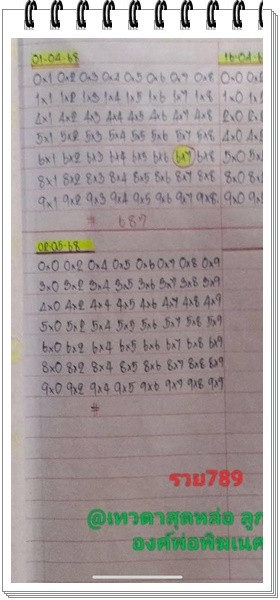 01-04-68
0x1 0x2 0x3 0x4 0x5 0x6 0x7 0x8
1x1 1x2 1x3 1x4 1x5 1x6 1x7 1x8
4x1 4x2 4x3 4x4 4x5 4x6 4x7 4x8
5x1 5x2 5x3 5x4 5x5 5x6 5x7 5x8
6x1 6x2 6x3 6x4 6x5 6x6 6x7 6x8
8x1 8x2 8x3 8x4 8x5 8x6 8x7 8x8
9x1 9x2 9x3 9x4 9x5 9x6 9x7 9x8
# 687
16-04-6
0x0 0x
1x0 1x
4x0 4x
5x0 5x
8x0 8x
9x0 9x
02-05-68
0x0 0x2 0x4 0x5 0x6 0x7 0x8 0x9
3x0 3x2 3x4 3x5 3x6 3x7 3x8 3x9
4x0 4x2 4x4 4x5 4x6 4x7 4x8 4x9
5x0 5x2 5x4 5x5 5x6 5x7 5x8 5x9
6x0 6x2 6x4 6x5 6x6 6x7 6x8 6x9
8x0 8x2 8x4 8x5 8x6 8x7 8x8 8x9
9x0 9x2 9x4 9x5 9x6 9x7 9x8 9x9
#
รวย789
@เทวดาสุดหล่อ ลูก
องค์พ่อพิฆเนศ